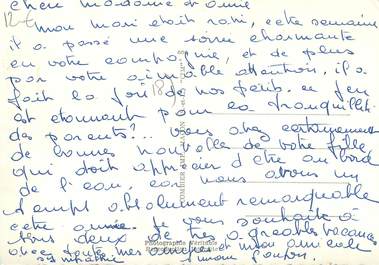 Chère madame et amie
12-7
mon mari était ravi, cette semaine
il a passé une soirée charmante
en votre compagnie, et de plus
par votre aimable attention, il a
fait la joie de nos petits. ce jeu
est étonnant pour la tranquillité
des parents?... vous avez certainement
de bonnes nouvelles de votre fille
qui doit apprécier d'être au bord
de l'eau, car nous avons un
temps absolument remarquable
cette année. Je vous souhaite à
tous deux de très agréables vacances
avec toute mes amitiés et mon amicale
sympathie Simone
COMBIER IMP. MACON
Photographie Véritable